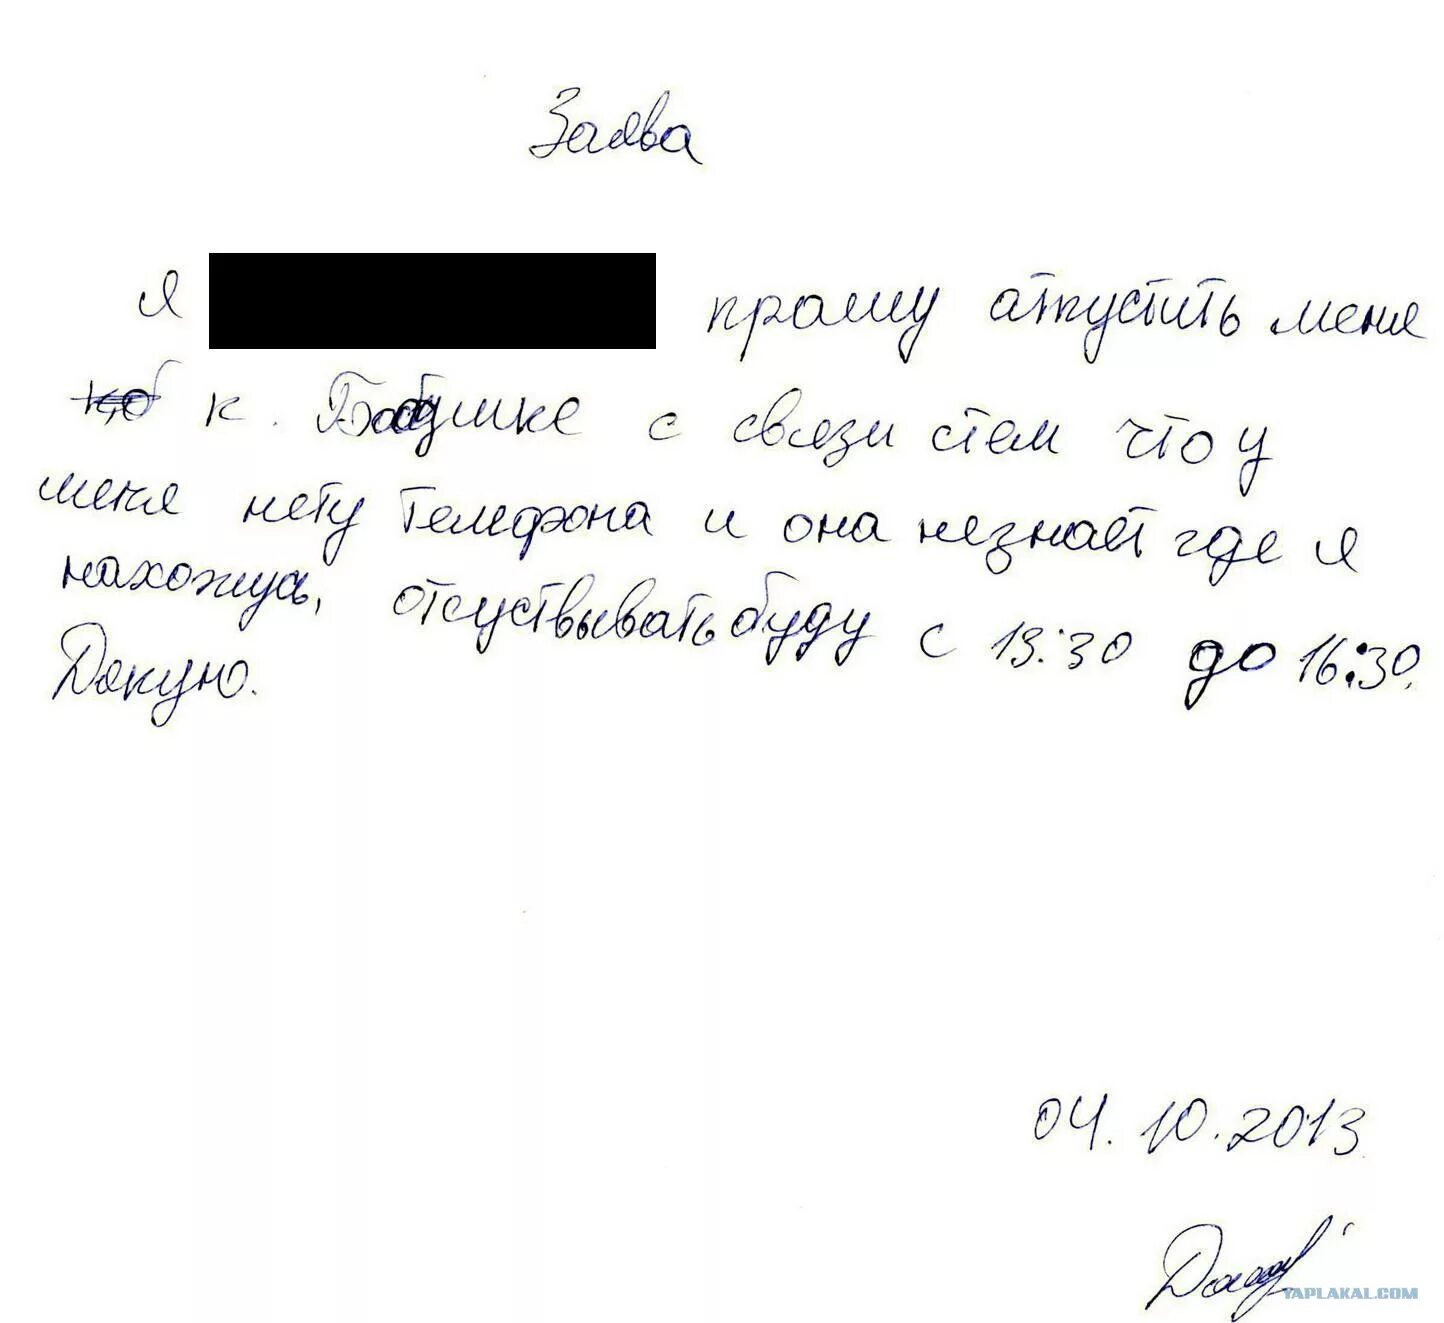 Заява
Я прашу атпустить меня
к. Бабушке с связи стем что у
меня нету телефона и она незнает где я
нахожусь, отсуствывать буду с 13:30 до 16:30.
Дякую.
04.10.2013
YAPLAKAL.COM